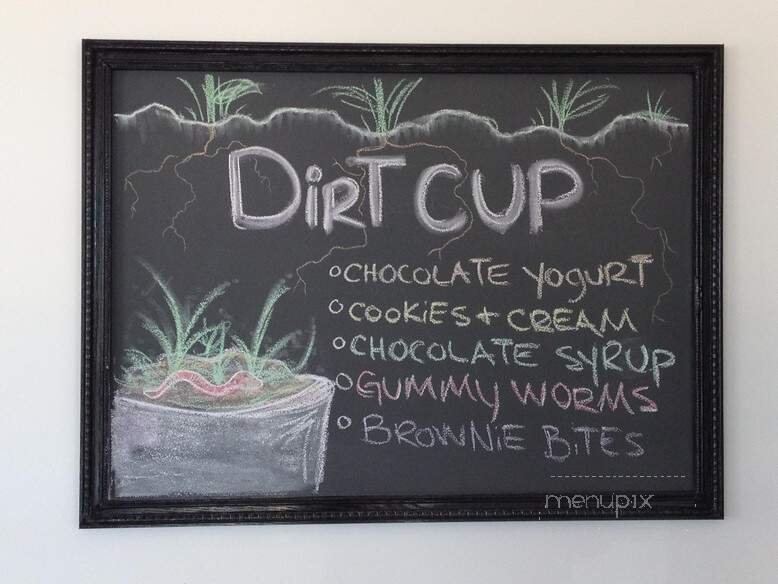 DiRT CUP
o CHOCOLATE YOGURT
o COOKiES + CREAM
o CHOCOLATE SYRUP
o GUMMY WORMS
o BROWNiE BiTES
menupix